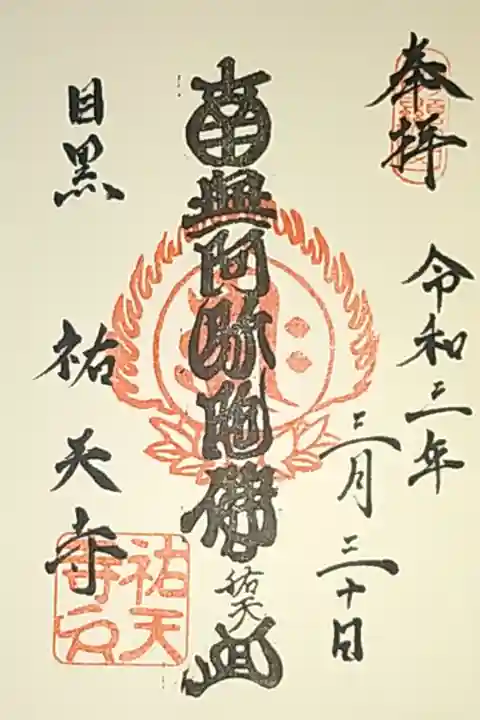 奉拝
令和三年
三月三十日
南無阿弥陀佛
祐天
目黒
祐天寺
祐天寺